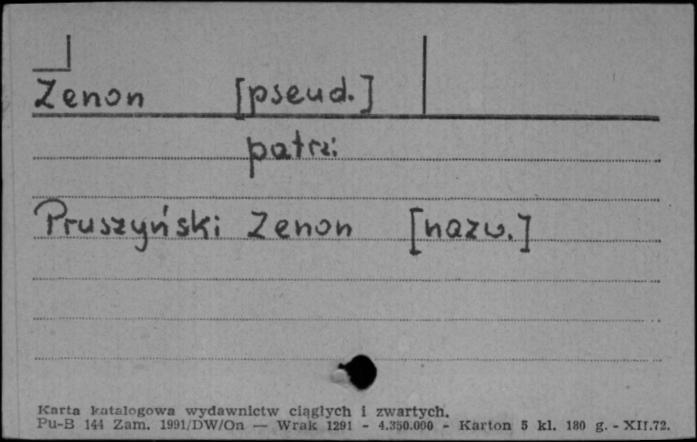 Zenon [pseud.]
patrz:
Pruszyński Zenon [nazw.]
Karta katalogowa wydawnictw ciągłych i zwartych.
Pu-B 144 Zam. 1991/DW/On — Wrak 1291 - 4.350.000 - Karton 5 kl. 180 g. - XII.72.